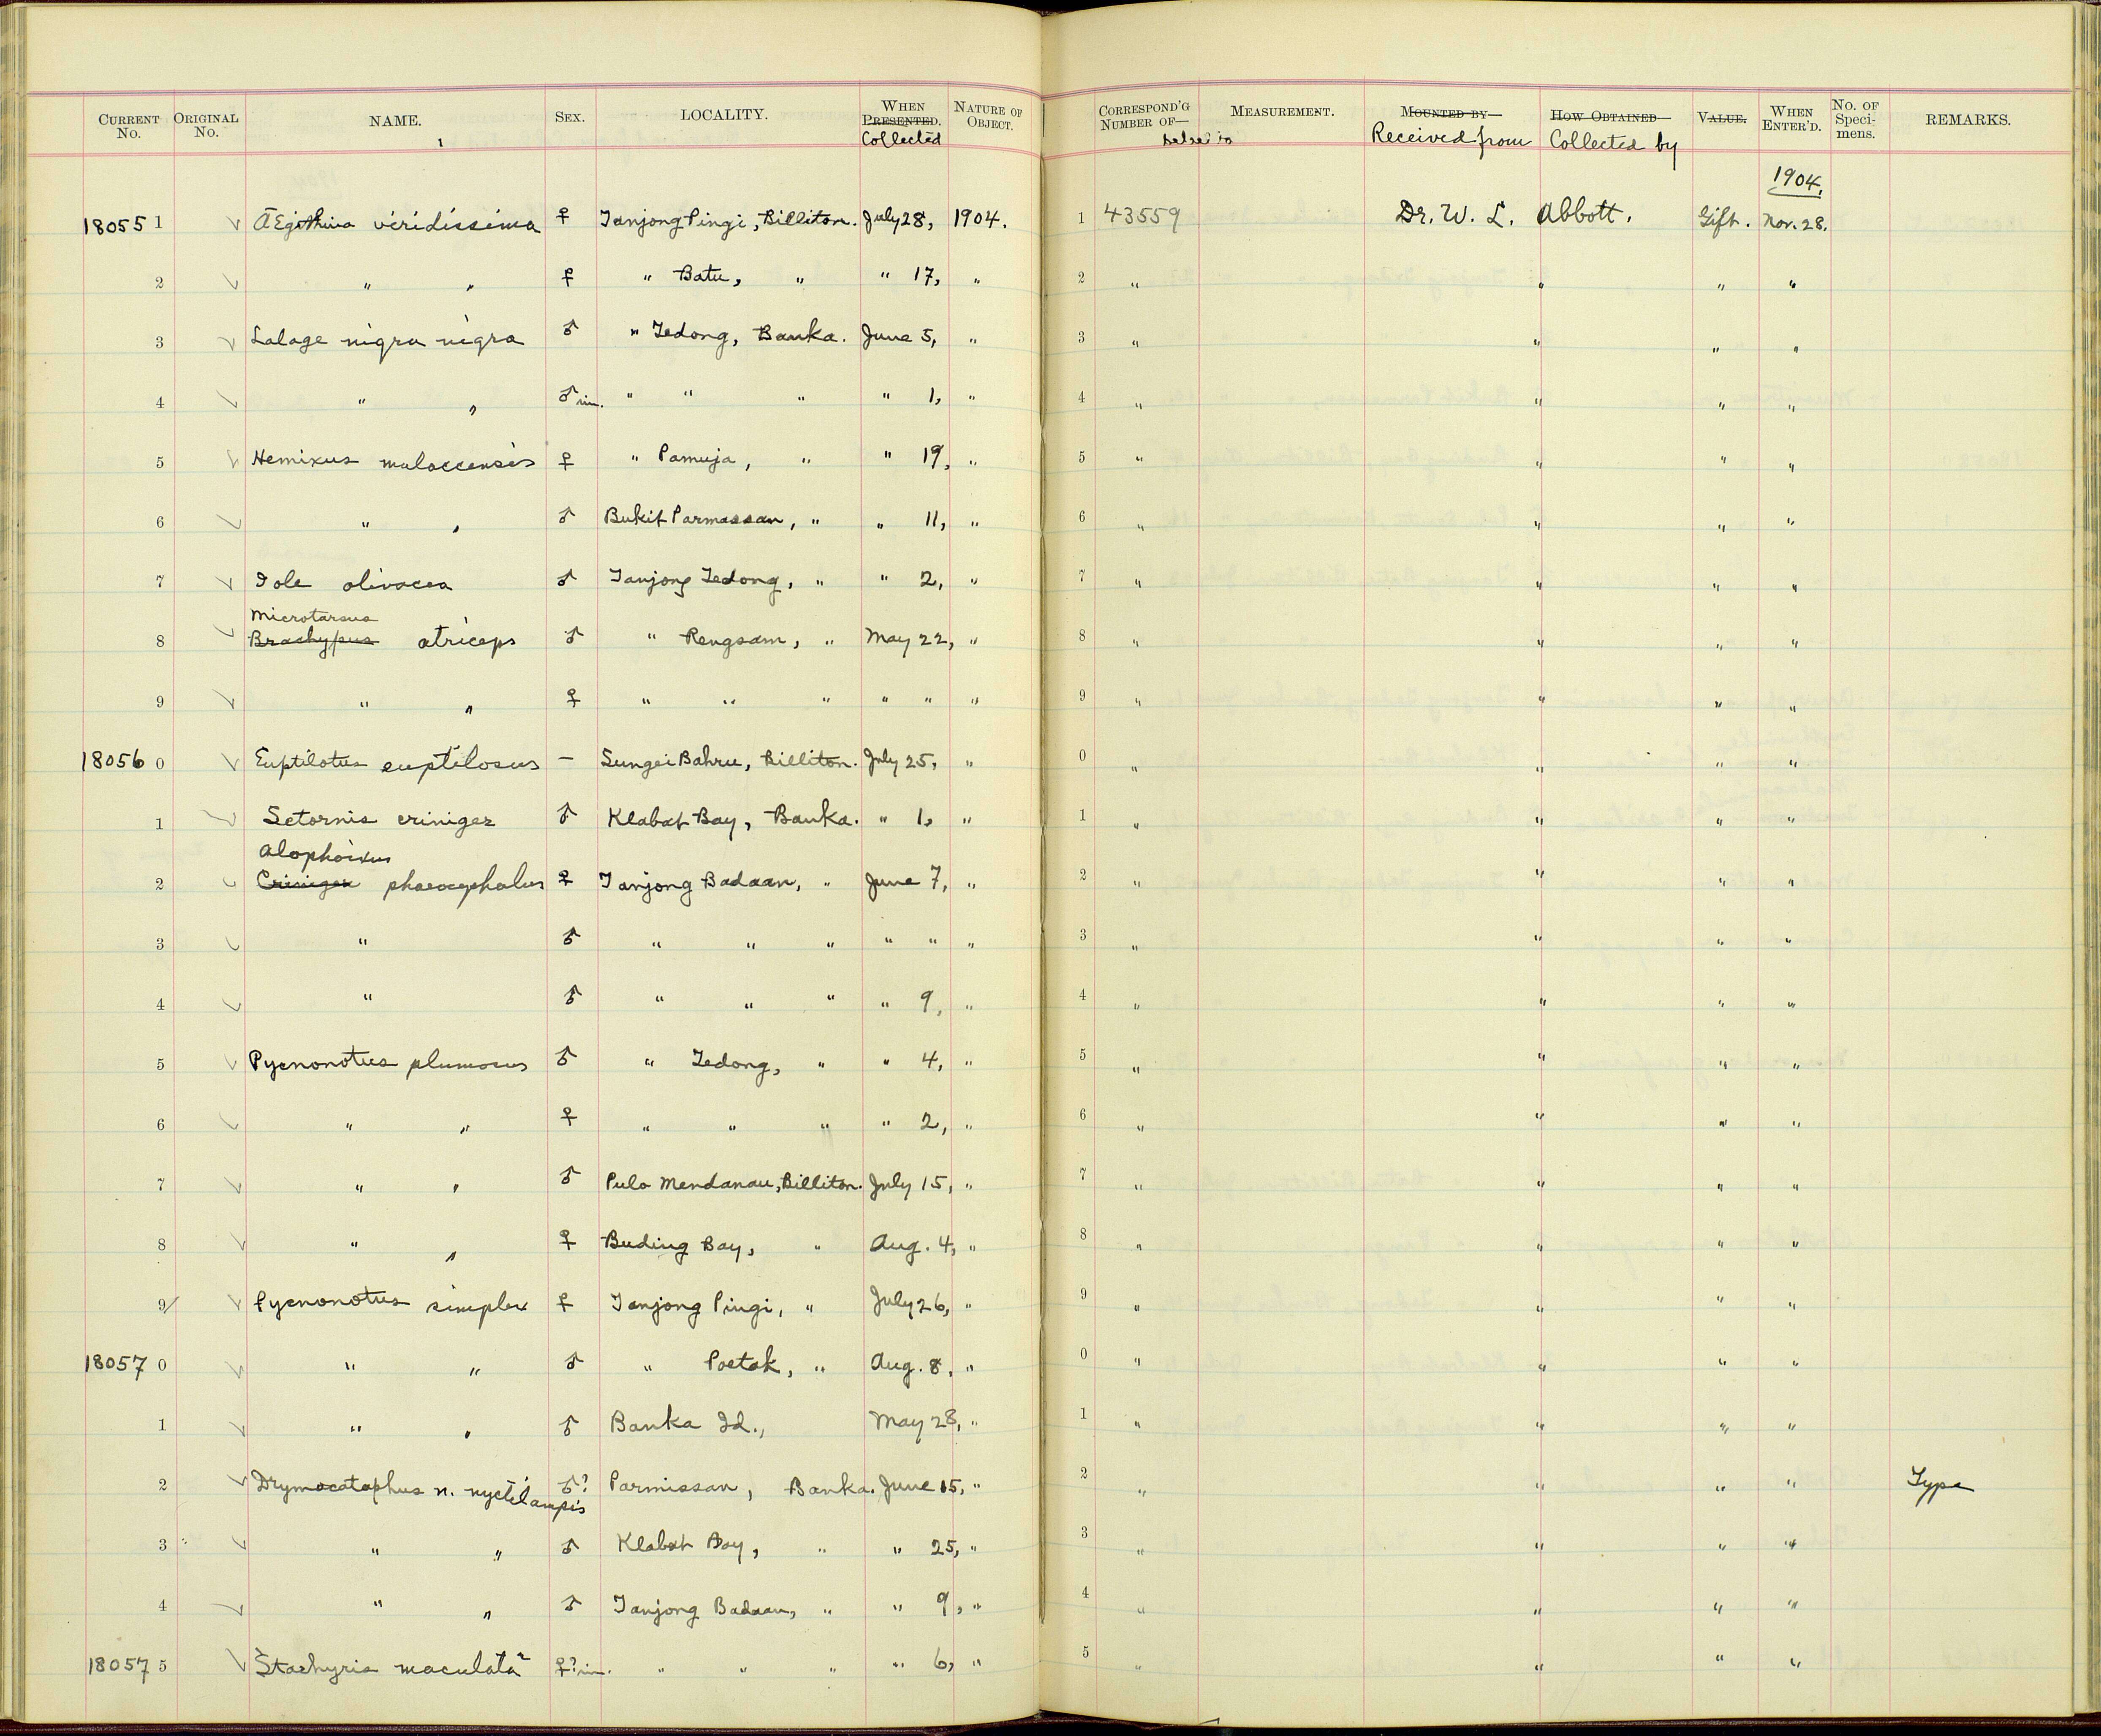 CURRENT No. ORIGINAL No. NAME. SEX. LOCALITY. WHEN PRESENTED. Collected NATURE OF OBJECT. CORRESPOND'G NUMBER OF— MEASUREMENT. MOUNTED BY— Received from HOW OBTAINED— Collected by VALUE. WHEN ENTER'D. No. OF Speci-mens. REMARKS.
1904.
18055 1 Ægithina viridissima ♀ Tanjong Pingi, Billiton. July 28, 1904. 1 43559 Dr. W. L. Abbott. Gift. Nov. 28.
2 " " ♀ " Batu, " " 17, " 2 " " " "
3 Lalage nigra nigra ♂ " Tedong, Banka. June 5, " 3 " " " "
4 " " ♂ im. " " " " 1, " 4 " " " "
5 Hemixus malaccensis ♀ " Pamuja, " " 19, " 5 " " " "
6 " " ♂ Bukit Parmassan, " " 11, " 6 " " " "
7 Iole olivacea ♂ Tanjong Tedong, " " 2, " 7 " " " "
Microtarsus
8 Brachypus atriceps ♂ " Rengsam, " May 22, " 8 " " " "
9 " " ♀ " " " " " " 9 " " " "
18056 0 Euptilotus euptilosus – Sungei Bahru, Billiton. July 25, " 0 " " " "
1 Setornis criniger ♂ Klabat Bay, Banka. " 1, " 1 " " " "
Alophoixus
2 Criniger phaeocephalus ♀ Tanjong Badaan, " June 7, " 2 " " " "
3 " ♂ " " " " " " 3 " " " "
4 " ♂ " " " " 9, " 4 " " " "
5 Pycnonotus plumosus ♂ " Tedong, " " 4, " 5 " " " "
6 " " ♀ " " " " 2, " 6 " " " "
7 " " ♂ Pulo Mendanau, Billiton. July 15, " 7 " " " "
8 " " ♀ Buding Bay, " Aug. 4, " 8 " " " "
9 Pycnonotus simplex ♀ Tanjong Pingi, " July 26, " 9 " " " "
18057 0 " " ♂ " Poetak, " Aug. 8, " 0 " " " "
1 " " ♂ Banka Id., May 28, " 1 " " " "
2 Drymocataphus n. nyctilampis ♂? Parmissan, Banka. June 15, " 2 " " " " Type
3 " " ♂ Klabat Bay, " " 25, " 3 " " " "
4 " " ♂ Tanjong Badaan, " " 9, " 4 " " " "
18057 5 Stachyris maculata ♀? im. " " " " 6, " 5 " " " "